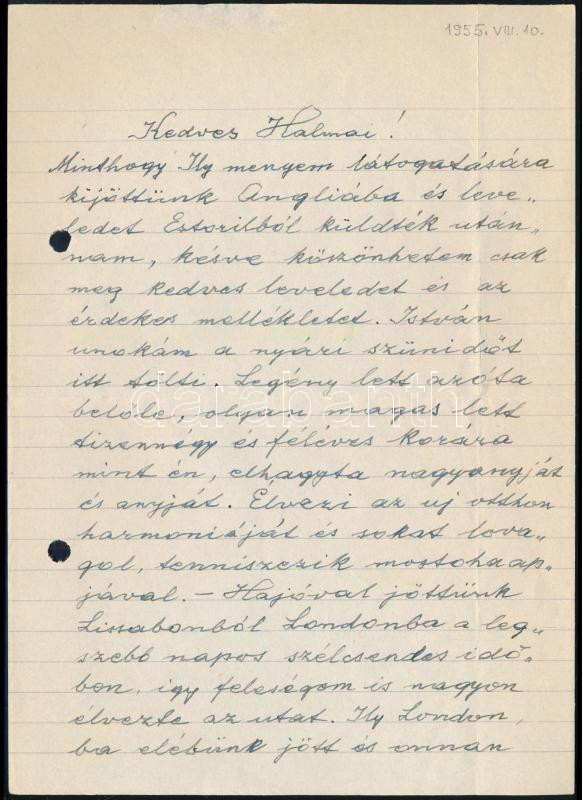 1955. VIII. 10.
Kedves Halmai!
Minthogy Ily menyem látogatására
kijöttünk Angliába és leve„
ledet Estorilból küldték után„
nam, késve köszönhetem csak
meg kedves leveledet és az
érdekes mellékletet. István
unokám a nyári szünidőt
itt tölti. Legény lett azóta
belőle, olyan magas lett
tizennégy és féléves korára
mint én, elhagyta nagyanyját
és anyját. Élvezi az uj otthon
harmoniáját és sokat lova„
gol, tenniszezik mostohaap„
jával. – Hajóval jöttünk
Lissabonból Londonba a leg„
szebb napos szélcsendes idő„
ben, igy feleségem is nagyon
élvezte az utat. Ily London„
ba elébünk jött és onnan
darabanth